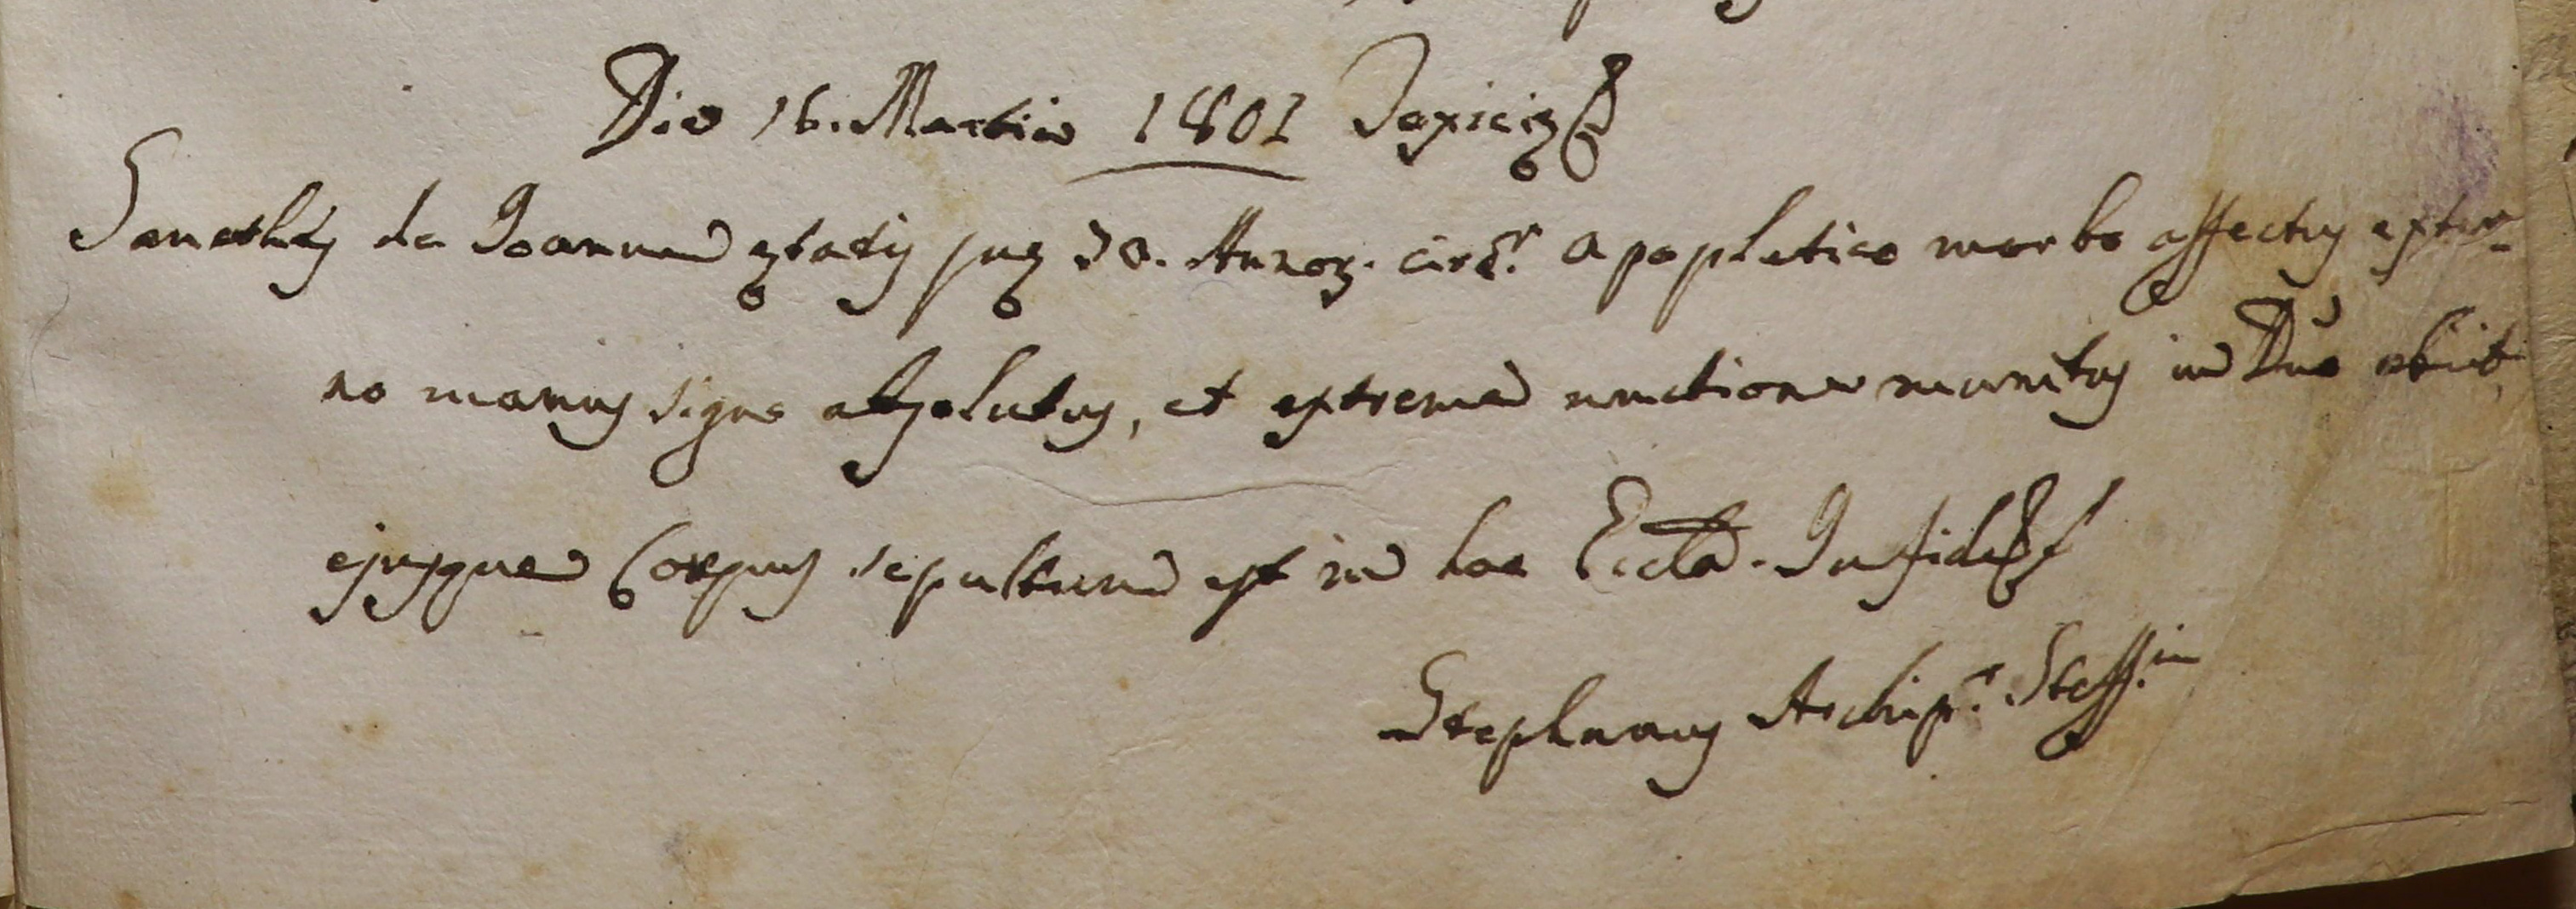 Die 16. Martii 1801 Topicii
de Joanne ætatis suæ 70. Annor. circr. apopletico morbo affectus exter-
no manus signo absolutus, et extrema unctione munitus in Dno obiit,
ejusque Corpus sepultum est in hac Eccla. In fid
Stephanus Archipr. Steff.in